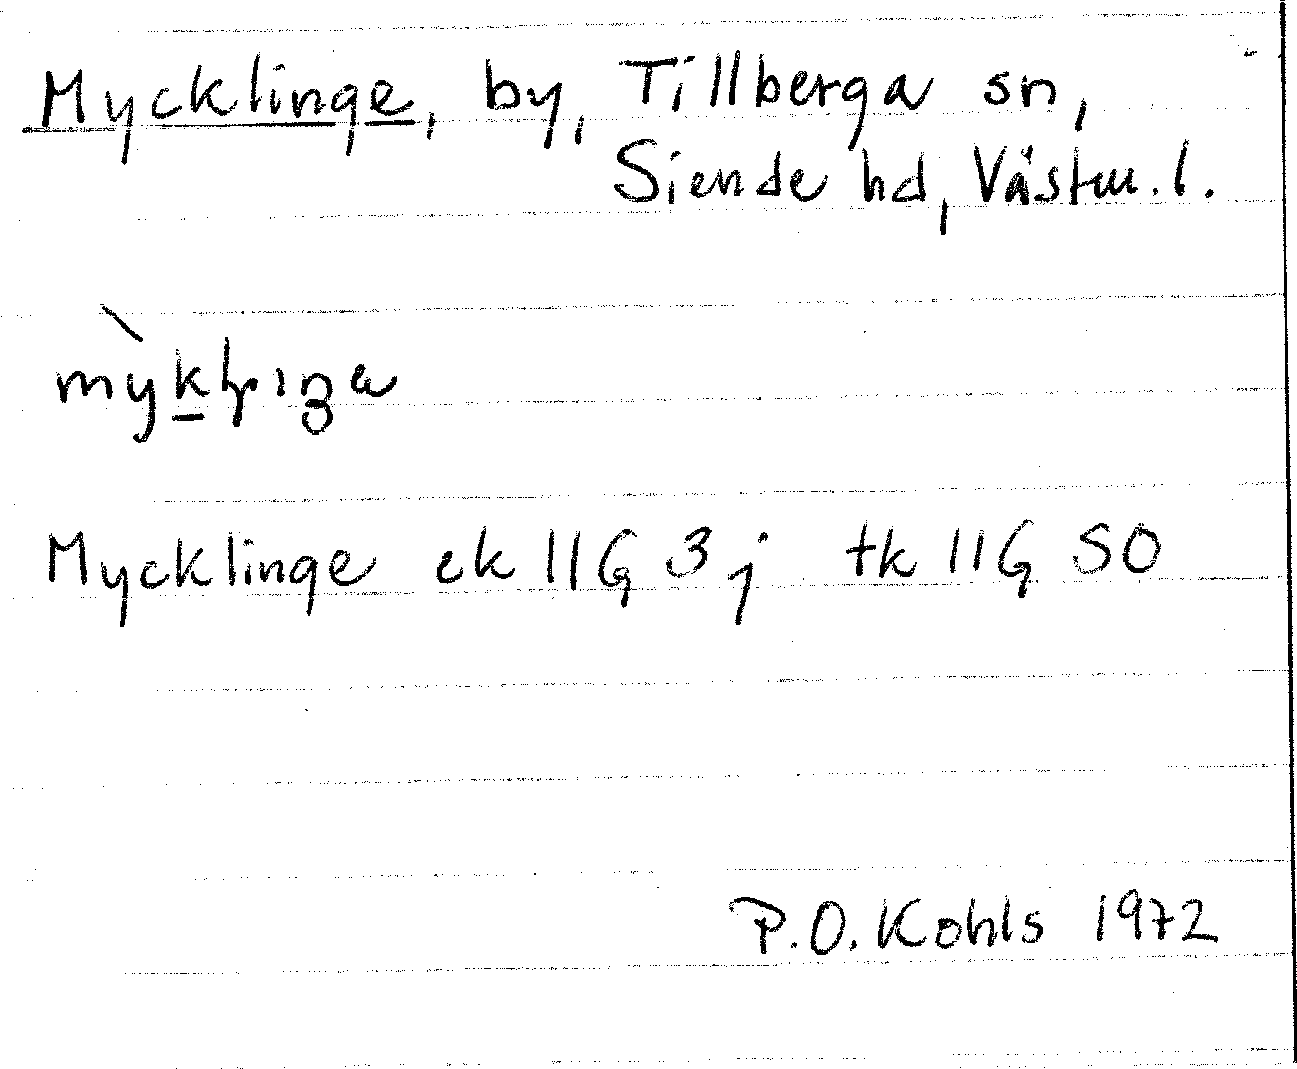 Mycklinge, by, Tillberga sn,
Siende hd, Västm. l.
Mycklinge ek 11G 3j tk 11G SO
P.O. Kohls 1972